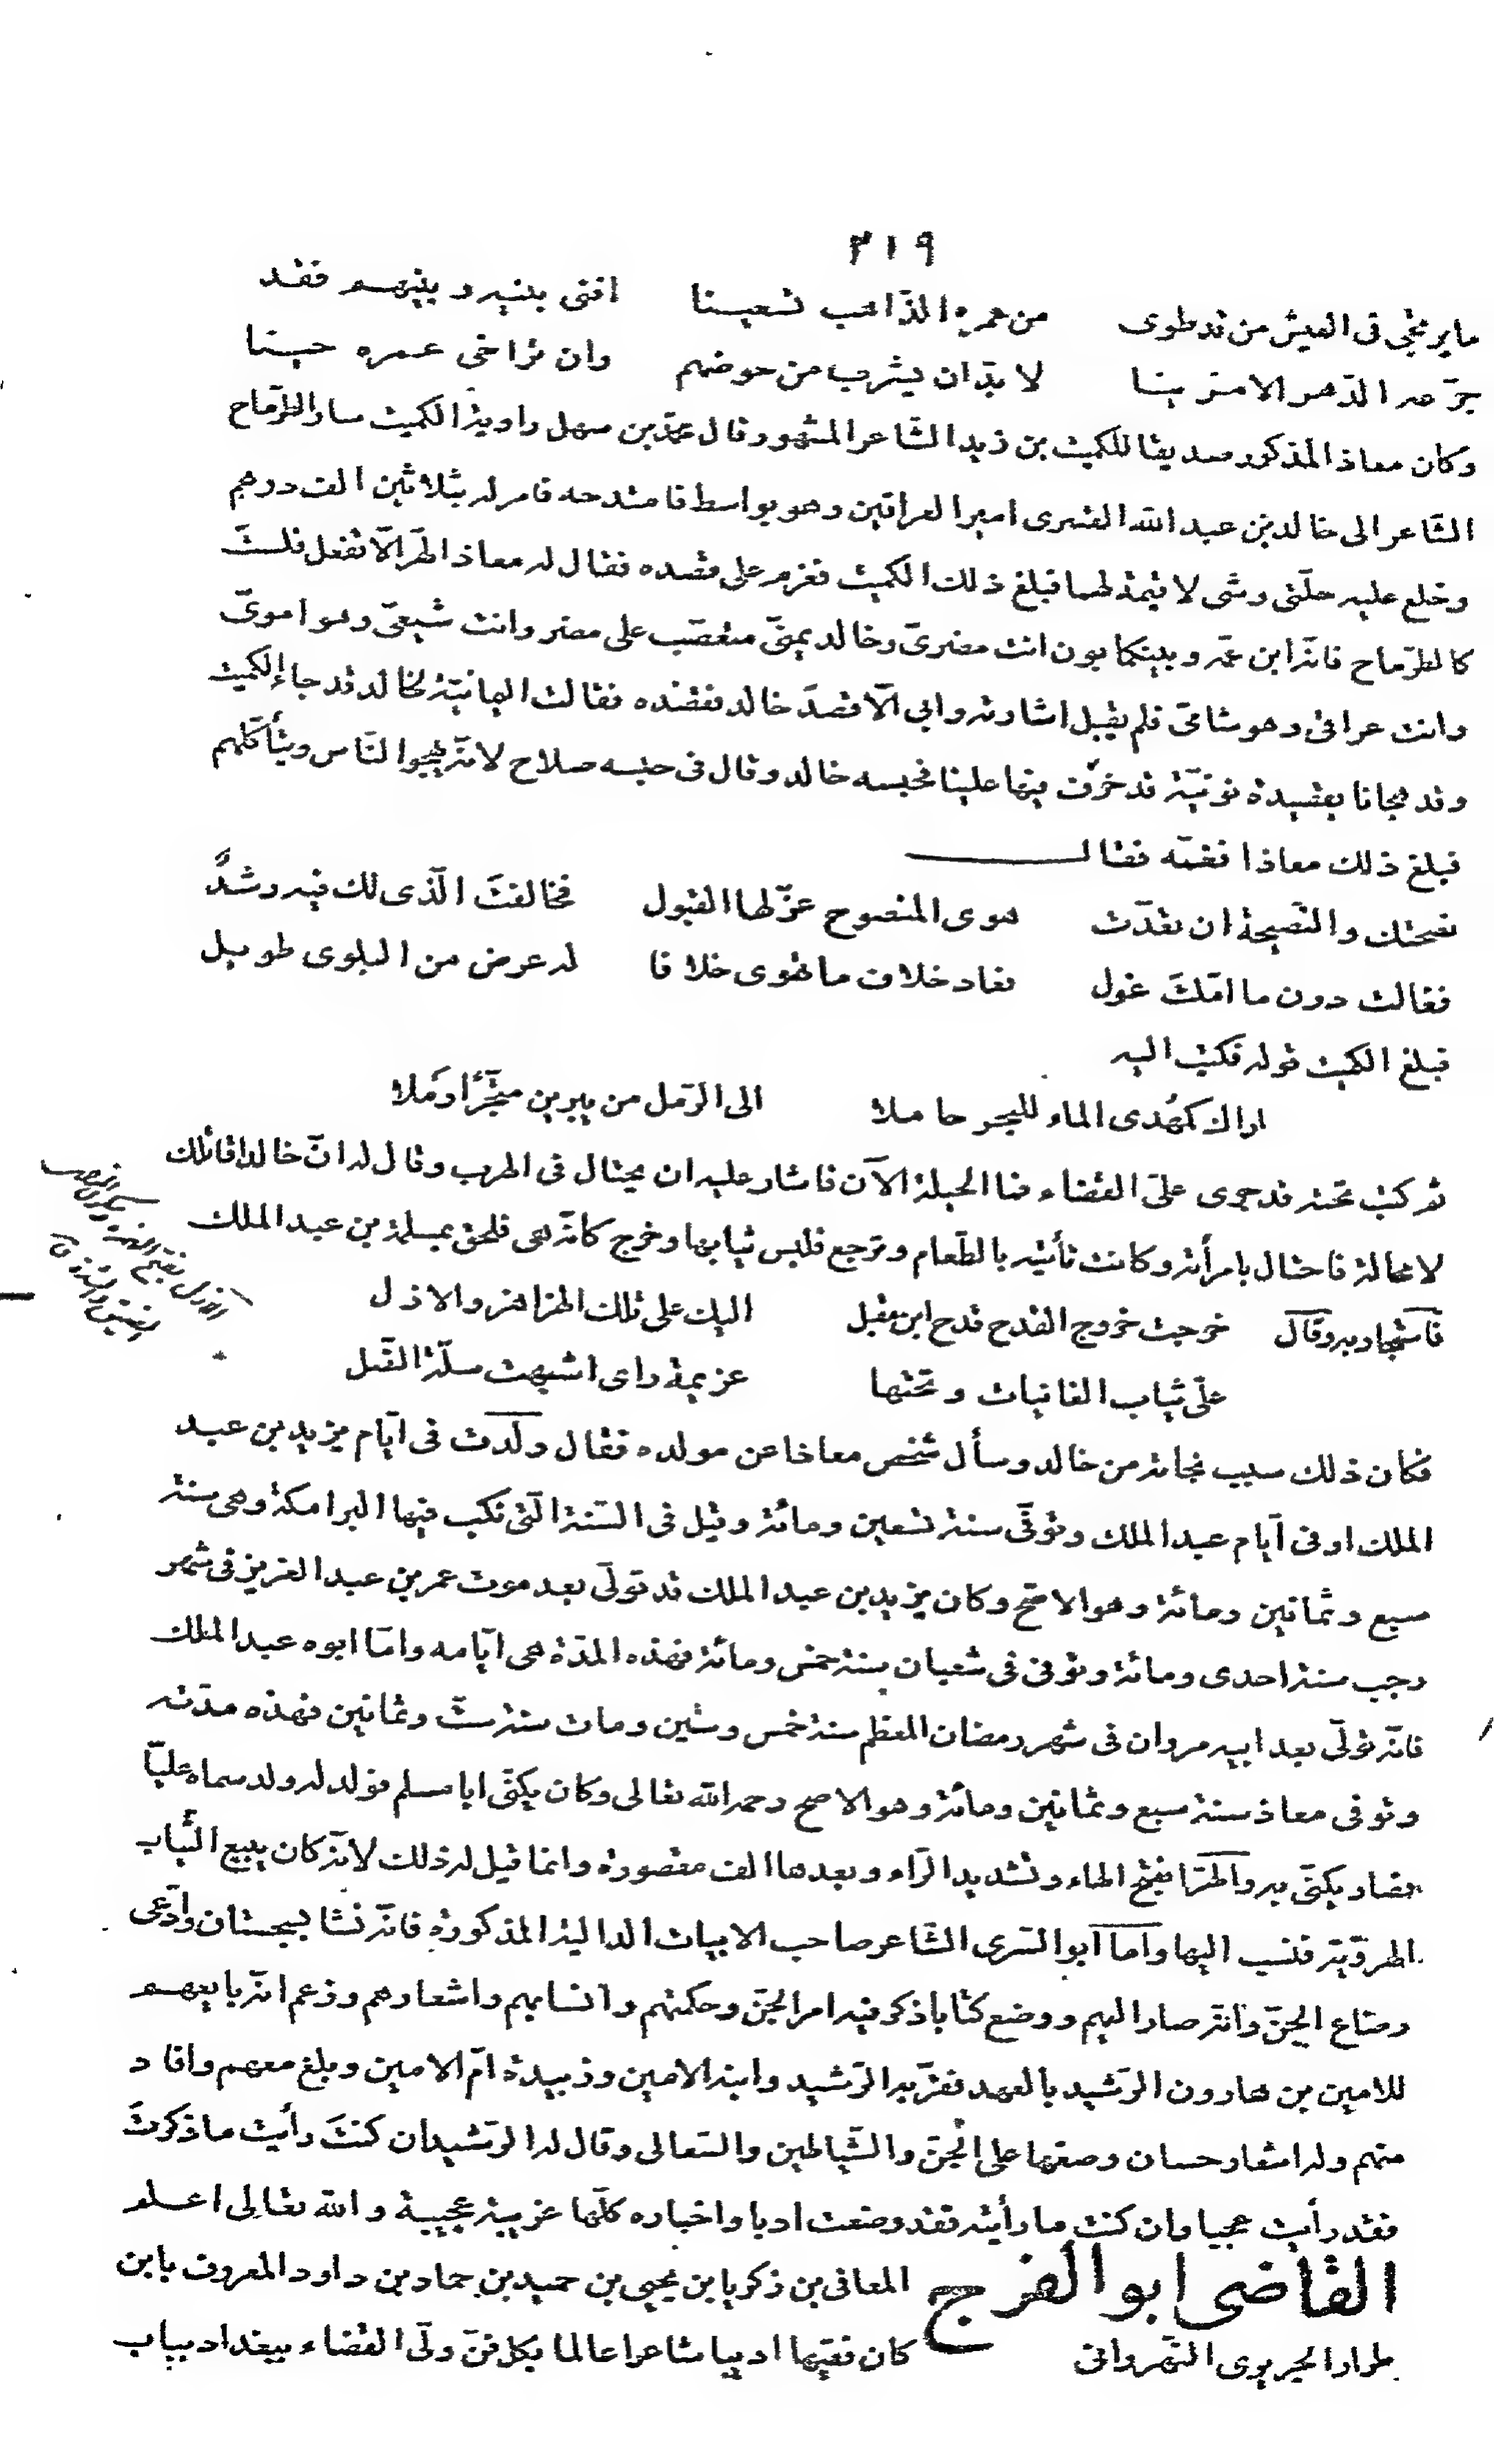 ٣١٩
ما يرتجى فى العيش من قد طوى من عمره الذّاهب تسعينا افنى بنيه وبنيهم فقد
جرّعه الدّهر الامرّينا لا بدّ ان يشرب من حوضهم وان تراخى عمره حينا
وكان معاذ المذكور صديقا للكميت بن زيد الشّاعر المشهور قال محمّد بن سهل راوية الكميت سار الطّرمّاح
الشّاعر الى خالد بن عبد الله القسرى امير العراقين وهو بواسط فامتدحه فامر له بثلاثين الف درهم
وخلع عليه حلّتى وشى لا قيمة لهما فبلغ ذلك الكميت فعزم على قصده فقال له معاذ الهرّا لا تفعل فلستَ
كالطرّماح فانّه ابن عمّه وبينكما بون انت مضرىّ وخالد يمنىّ متعصّب على مضر وانت شيعىّ وهو اموىّ
وانت عراقىّ وهو شامىّ فلم يقبل اشارته وابى الّا قصدَ خالد فقصده فقالت اليمانيّة لخالد قد جاء الكميت
وقد هجانا بقصيدة نونيّة قد فخر فيها علينا فحبسه خالد وقال فى حبسه صلاح لانّه يهجوا النّاس ويتأكّلهم
فبلغ ذلك معاذا فغمّه فقال
نصحتك والنّصيحة ان تعدّت هوى المنصوح عزّ لها القبول فخالفتَ الّذى لك فيه رشدٌ
فغالت دون ما امّلتَ غول فعاد خلاف ما تهوى خلافا له عرض من البلوى طويل
فبلغ الكميت قوله فكتب اليه
اراك كمُهدى الماء للبحر حاملا الى الرّمل من يبرين متّجرًا رملا
ثم كتب تحته قد جرى علىّ القضاء فما الحيلة الآن فاشار عليه ان يحتال فى الهرب وقال له انّ خالدا قاتلك
لا محالة فاحتال بامرأته وكانت تأتيه بالطّعام وترجع فلبس ثيابها وخرج كانّه هى فلحق بمسلمة بن عبد الملك
فاستجار به وقال خرجت خروج القدح قدح ابن مقبل اليك على تلك الهزاهز والازل
علىّ ثياب الغانيات وتحتها عزيمة راى اشبهت سلّة النّصل
فكان ذلك سبب نجاته من خالد وسأل شخص معاذا عن مولده فقال ولدت فى ايّام يزيد بن عبد
الملك او فى ايّام عبد الملك وتوفّى سنة تسعين ومائة وقيل فى السّنة الّتى نكب فيها البرامكة وهى سنة
سبع وثمانين ومائة وهو الاصحّ وكان يزيد بن عبد الملك قد تولّى بعد موت عمر بن عبد العزيز فى شهر
رجب سنة احدى ومائة وتوفى فى شعبان سنة خمس ومائة فهذه المدّة هى ايّامه وامّا ابوه عبد الملك
فانّه تولّى بعد ابيه مروان فى شهر رمضان المعظم سنة خمس وستين ومات سنة ستّ وثمانين فهذه مدّته
وتوفى معاذ سنة سبع وثمانين ومائة وهو الاصح رحمه الله تعالى وكان يكنّى ابا مسلم فولد له ولد سماه عليّا
فصار يكنّى به والهرّا بفتح الهاء وتشديد الرّاء وبعدها الف مقصورة وانما قيل له ذلك لانّه كان يبيع الثّياب
الهرويّة فنسب اليها وامّا ابو السّرى الشّاعر صاحب الابيات الدالية المذكورة فانّه نشا بسجستان وادّعى
رضاع الجنّ وانّه صار اليهم ووضع كتابا ذكر فيه امر الجنّ وحكمتهم وانسابهم واشعارهم وزعم انّه بايعهم
للامين بن هارون الرّشيد بالعهد فقرّبه الرّشيد وابنه الامين وزبيدة امّ الامين وبلغ معهم وافاد
منهم وله اشعار حسان وضعها على الجنّ والشّياطين والسّعالى وقال له الرّشيد ان كنتَ رأيت ما ذكرتَ
فقد رأيت عجبا وان كنت ما رأيته فقد وضعت ادبا واخباره كلّها غريبة عجيبة والله تعالى اعلم
القاضى ابو الفرج المعافى بن زكريا بن يحيى بن حميد بن حماد بن داود المعروف بابن
طرارا الجريرى النّهروانى كان فقيها اديبا شاعرا عالما بكل فنّ ولّى القضاء ببغداد بباب
الازل بفتح الهمزة وسكون الزاى
الضيق والشدة